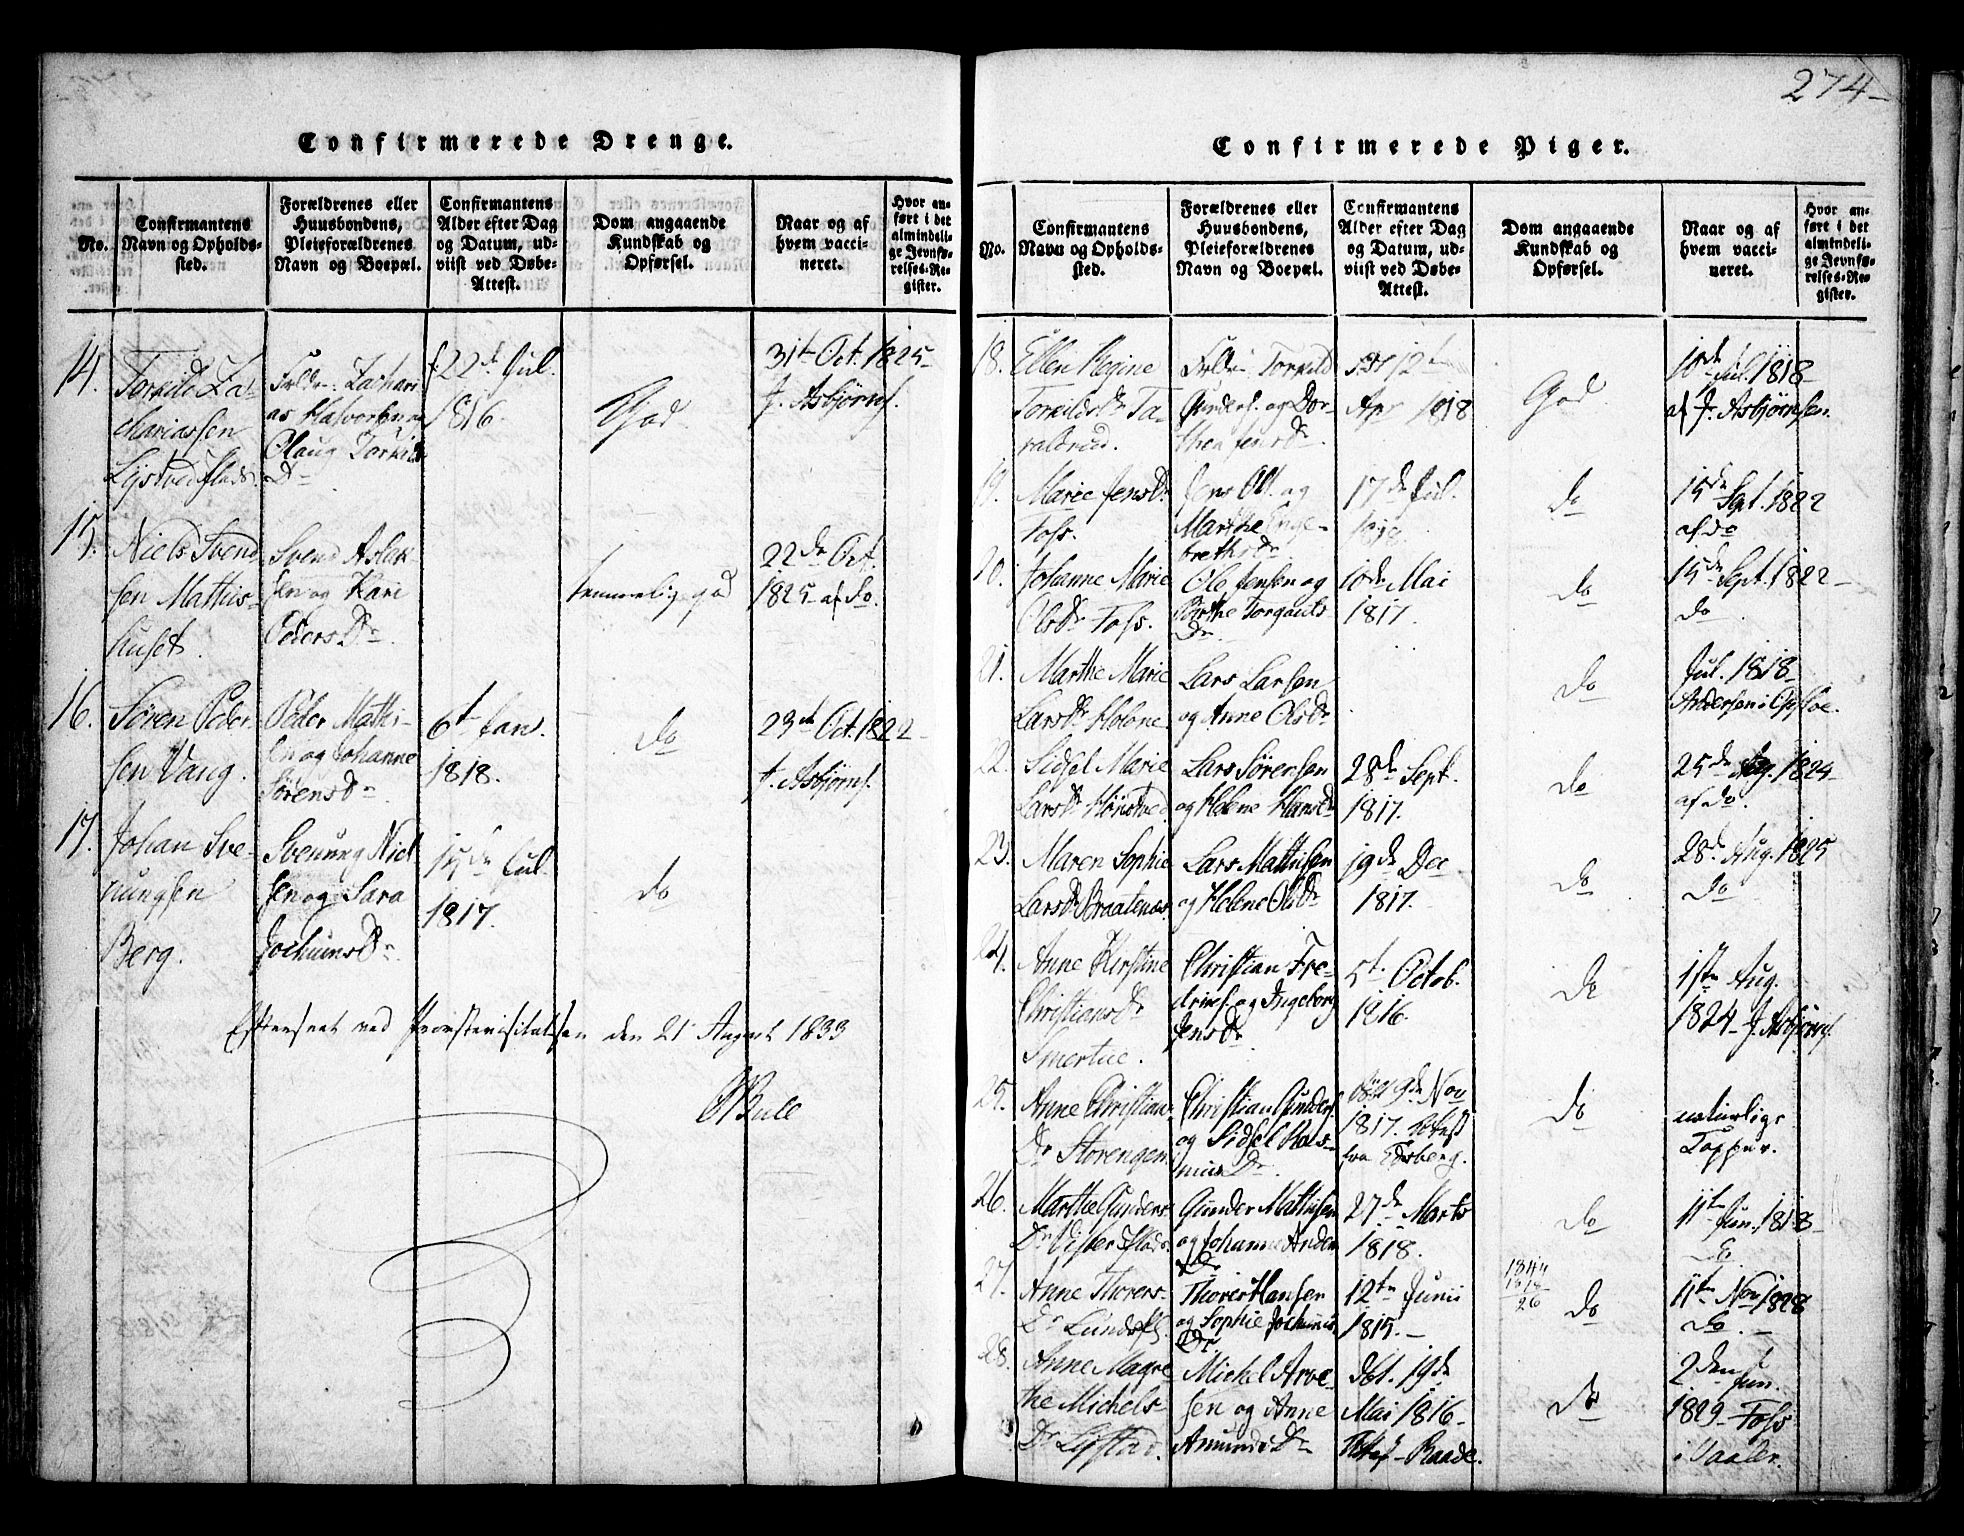 274
Confirmerede Drenge.
No.
Confirmantens
Navn og Opholds-
sted.
Forældrenes eller
Huusbondens,
Pleieforældrenes
Navn og Boepæl.
Confirmantens
Alder efter Dag
og Datum, ud-
viist ved Døbe-
Attest.
Dom angaaende
Kundskab og
Opførsel.
Naar og af
hvem vacci-
neret.
Hvor an-
ført i det
almindeli-
ge Jevnfø-
relses-Re-
gister.
14.
Torkild Za-
chariassen
Forældr: Zachari
as Halvorsen og
Olaug Torkilds
Dr
22de Jul.
1816.
God
31t Oct. 1825
J. Asbjørns.
15.
Niels Svend
sen Mathis-
huset.
Svend Aslak
sen og Kari
Peders Dr.
temmelig god
22de Oct.
1825 af do.
16.
Søren Peder
sen Vang.
Peder Mathi-
sen og Johanne
Sørens Dr
6t Jan.
1818.
do
23de Oct. 1822
J. Asbjørns.
17.
Johan Sve-
nungsen
Berg.
Svenung Niel
sen og Sara
Jochums Dr.
15de Jul.
1817.
do
Efterseet ved Provstevisitatsen den 21 August 1833
Bull
Confirmerede Piger.
No.
Confirmantens
Navn og Opholds-
sted.
Forældrenes eller
Huusbondens,
Pleieforældrenes
Navn og Boepæl.
Confirmantens
Alder efter Dag
og Datum, ud-
viist ved Døbe-
Attest.
Dom angaaende
Kundskab og
Opførsel.
Naar og af
hvem vacci-
neret.
Hvor an-
ført i det
almindeli-
ge Jevnfø-
relses-Re-
gister.
18.
Ellen Regine
Torkilds Dr Ta-
raldrud.
Forældr: Torkild
Gunders. og Dor-
thea Jens Dr.
12t
Apr 1818
God
10de Jul. 1818
af J. Asbjørnsen.
19.
Marie Jens Dr
Foss.
Jens Ols. og
Marthe Enge-
breths Dr
17de Jul.
do
15de Sept. 1822
af do
20.
Johanne Marie
Ols Dr Foss.
Ole Jensen og
Birthe Torgauts
Dr
10de Mai
1817.
do
15de Sept. 1822
do
21.
Marthe Marie
Lars Dr
Lars Larsen
og Anne Ols Dr
do
Jul. 1818
Andersen i
22.
Sidsel Marie
Lars Dr
Lars Sørensen
og Helene Hans Dr
28de Sept.
1817.
do
25de 1824
af do.
23.
Maren Sophie
Lars Dr Braatenes.
Lars Mathisen
og Helene Ols Dr
19de Dec
1817.
do
28de Aug. 1825
do
24.
Anne Kirstine
Christians Dr
Smertue.
Christian Fre-
driks. og Ingeborg
Jens Dr
5t Octob.
1816.
do
1ste Aug.
1824 J. Asbjørns.
25.
Anne Christians
Dr Storengen.
Christian Gunders.
og Sidsel Ras-
mus Dr.
døbt 9de Nov
1817. Attest
fra Edsberg.
do
naturlige
Kopper.
26.
Marthe Gunders
Dr
Gunder Mathisen
og Johanne Anders
Dr
27de Marts
1818.
do
11te Jun. 1818
27.
Anne Thorers
Dr
Thorer Hansen
og Sophie Jochums
Dr.
12te Junii
1815.
1844
1818
26
do
11te Nov 1828
do.
28.
Anne Magre
the Michels
Dr Lystad.
Michel Arve-
sen og Anne
Amunds Dr
døbt. 19de
Mai 1816
Attest Raade.
do
2den Jun.
1829 Foss
i Vaaler.